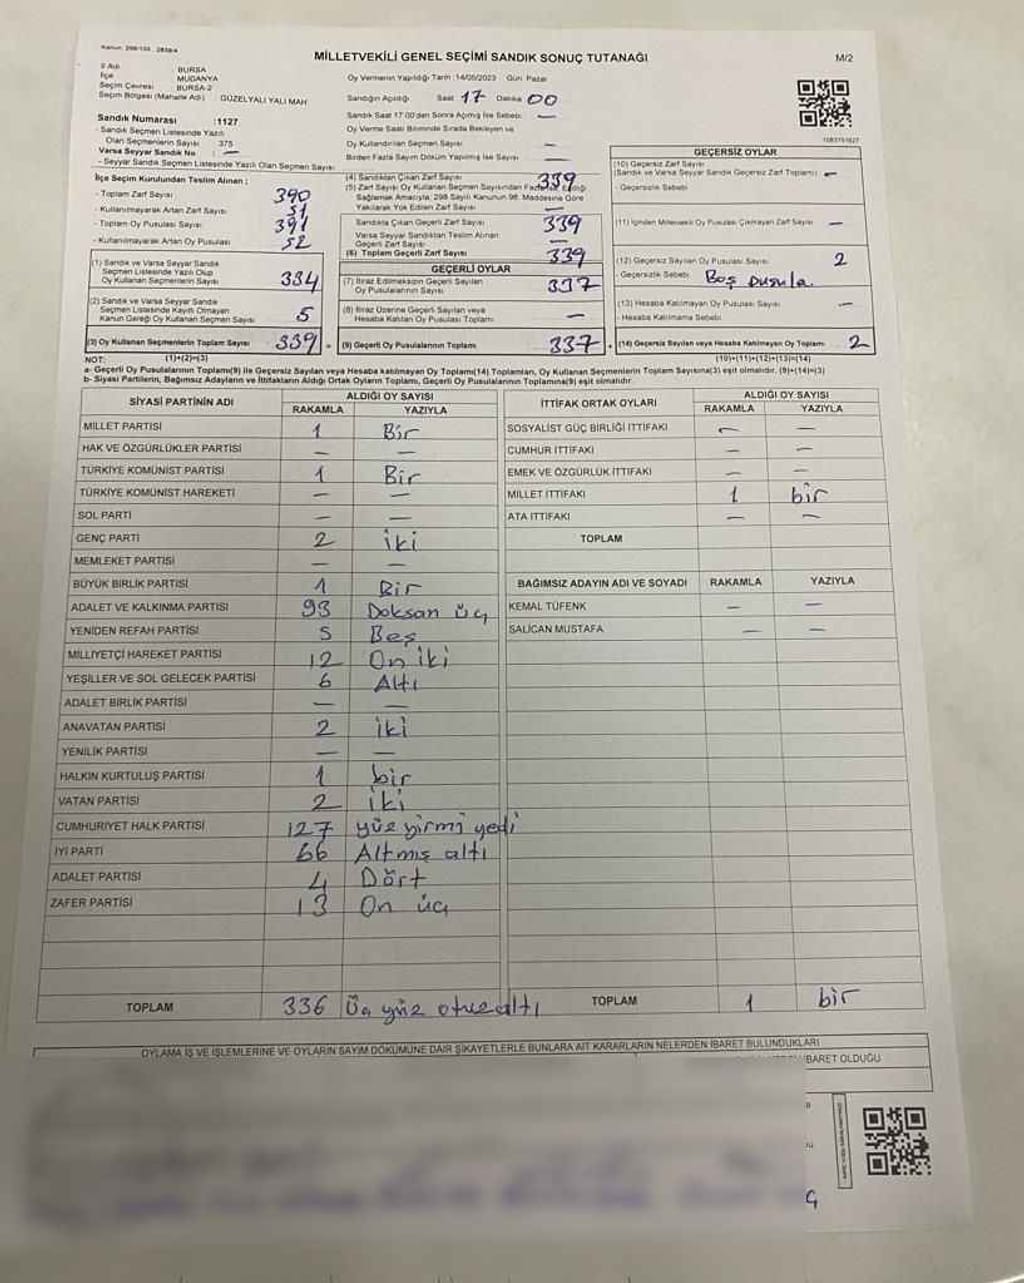 MİLLETVEKİLİ GENEL SEÇİMİ SANDIK SONUÇ TUTANAĞI
M/2
İl Adı : BURSA
İlçe : MUDANYA
Seçim Çevresi : BURSA-2
Seçim Bölgesi (Mahalle Adı) : GÜZELYALI YALI MAH
Sandık Numarası : 1127
- Sandık Seçmen Listesinde Yazılı
Olan Seçmenlerin Sayısı : 375
Varsa Seyyar Sandık No : —
- Seyyar Sandık Seçmen Listesinde Yazılı Olan Seçmen Sayısı
İlçe Seçim Kurulundan Teslim Alınan ;
- Toplam Zarf Sayısı 390
- Kullanılmayarak Artan Zarf Sayısı 51
- Toplam Oy Pusulası Sayısı 391
- Kullanılmayarak Artan Oy Pusulası 52
(1) Sandık ve Varsa Seyyar Sandık
Seçmen Listesinde Yazılı Olup
Oy Kullanan Seçmenlerin Sayısı 334
(2) Sandık ve Varsa Seyyar Sandık
Seçmen Listesinde Kayıtlı Olmayan
Kanun Gereği Oy Kullanan Seçmen Sayısı 5
(3) Oy Kullanan Seçmenlerin Toplam Sayısı 339
(1)+(2)=(3)
Oy Vermenin Yapıldığı Tarih :14/05/2023 Gün: Pazar
Sandığın Açıldığı Saat 17 Dakika 00
Sandık Saat 17:00'dan Sonra Açılmış İse Sebebi —
Oy Verme Saati Bitiminde Sırada Bekleyen ve
Oy Kullandırılan Seçmen Sayısı —
Birden Fazla Sayım Döküm Yapılmış İse Sayısı —
(4) Sandıktan Çıkan Zarf Sayısı 339
(5) Zarf Sayısı Oy Kullanan Seçmen Sayısından Fazla
Sağlamak Amacıyla, 298 Sayılı Kanunun 98. Maddesine Göre
Yakılarak Yok Edilen Zarf Sayısı —
Sandıkta Çıkan Geçerli Zarf Sayısı 339
Varsa Seyyar Sandıktan Teslim Alınan
Geçerli Zarf Sayısı —
(6) Toplam Geçerli Zarf Sayısı 339
GEÇERLİ OYLAR
(7) İtiraz Edilmeksizin Geçerli Sayılan
Oy Pusulalarının Sayısı 337
(8) İtiraz Üzerine Geçerli Sayılan veya
Hesaba Katılan Oy Pusulası Toplamı —
(9) Geçerli Oy Pusulalarının Toplamı 337
GEÇERSİZ OYLAR
(10) Geçersiz Zarf Sayısı
(Sandık ve Varsa Seyyar Sandık Geçersiz Zarf Toplamı) —
- Geçersizlik Sebebi
(11) İçinden Milletvekili Oy Pusulası Çıkmayan Zarf Sayısı —
(12) Geçersiz Sayılan Oy Pusulası Sayısı 2
- Geçersizlik Sebebi Boş pusula.
(13) Hesaba Katılmayan Oy Pusulası Sayısı —
- Hesaba Katılmama Sebebi
(14) Geçersiz Sayılan veya Hesaba Katılmayan Oy Toplamı 2
(10)+(11)+(12)+(13)=(14)
NOT:
a- Geçerli Oy Pusulaları Toplamı(9) ile Geçersiz Sayılan veya Hesaba katılmayan Oy Toplamı(14) Toplamları, Oy Kullanan Seçmenlerin Toplam Sayısına(3) eşit olmalıdır. (9)+(14)=(3)
b- Siyasi Partilerin, Bağımsız Adayların ve İttifakların Aldığı Ortak Oyların Toplamı, Geçerli Oy Pusulalarının Toplamına(9) eşit olmalıdır.
SİYASİ PARTİNİN ADI ALDIĞI OY SAYISI
RAKAMLA YAZIYLA
MİLLET PARTİSİ 1 Bir
HAK VE ÖZGÜRLÜKLER PARTİSİ — —
TÜRKİYE KOMÜNİST PARTİSİ 1 Bir
TÜRKİYE KOMÜNİST HAREKETİ — —
SOL PARTİ — —
GENÇ PARTİ 2 iki
MEMLEKET PARTİSİ — —
BÜYÜK BİRLİK PARTİSİ 1 Bir
ADALET VE KALKINMA PARTİSİ 93 Doksan üç
YENİDEN REFAH PARTİSİ 5 Beş
MİLLİYETÇİ HAREKET PARTİSİ 12 On iki
YEŞİLLER VE SOL GELECEK PARTİSİ 6 Altı
ADALET BİRLİK PARTİSİ — —
ANAVATAN PARTİSİ 2 iki
YENİLİK PARTİSİ — —
HALKIN KURTULUŞ PARTİSİ 1 bir
VATAN PARTİSİ 2 iki
CUMHURİYET HALK PARTİSİ 127 yüz yirmi yedi
İYİ PARTİ 66 Altmış altı
ADALET PARTİSİ 4 Dört
ZAFER PARTİSİ 13 On üç
TOPLAM 336 Üç yüz otuz altı
İTTİFAK ORTAK OYLARI ALDIĞI OY SAYISI
RAKAMLA YAZIYLA
SOSYALİST GÜÇ BİRLİĞİ İTTİFAKI — —
CUMHUR İTTİFAKI — —
EMEK VE ÖZGÜRLÜK İTTİFAKI — —
MİLLET İTTİFAKI 1 bir
ATA İTTİFAKI — —
TOPLAM
BAĞIMSIZ ADAYIN ADI VE SOYADI RAKAMLA YAZIYLA
KEMAL TÜFENK — —
SALİCAN MUSTAFA — —
TOPLAM 1 bir
OYLAMA İŞ VE İŞLEMLERİNE VE OYLARIN SAYIM DÖKÜMÜNE DAİR ŞİKAYETLERLE BUNLARA AİT KARARLARIN NELERDEN İBARET BULUNDUKLARI
İBARET OLDUĞU